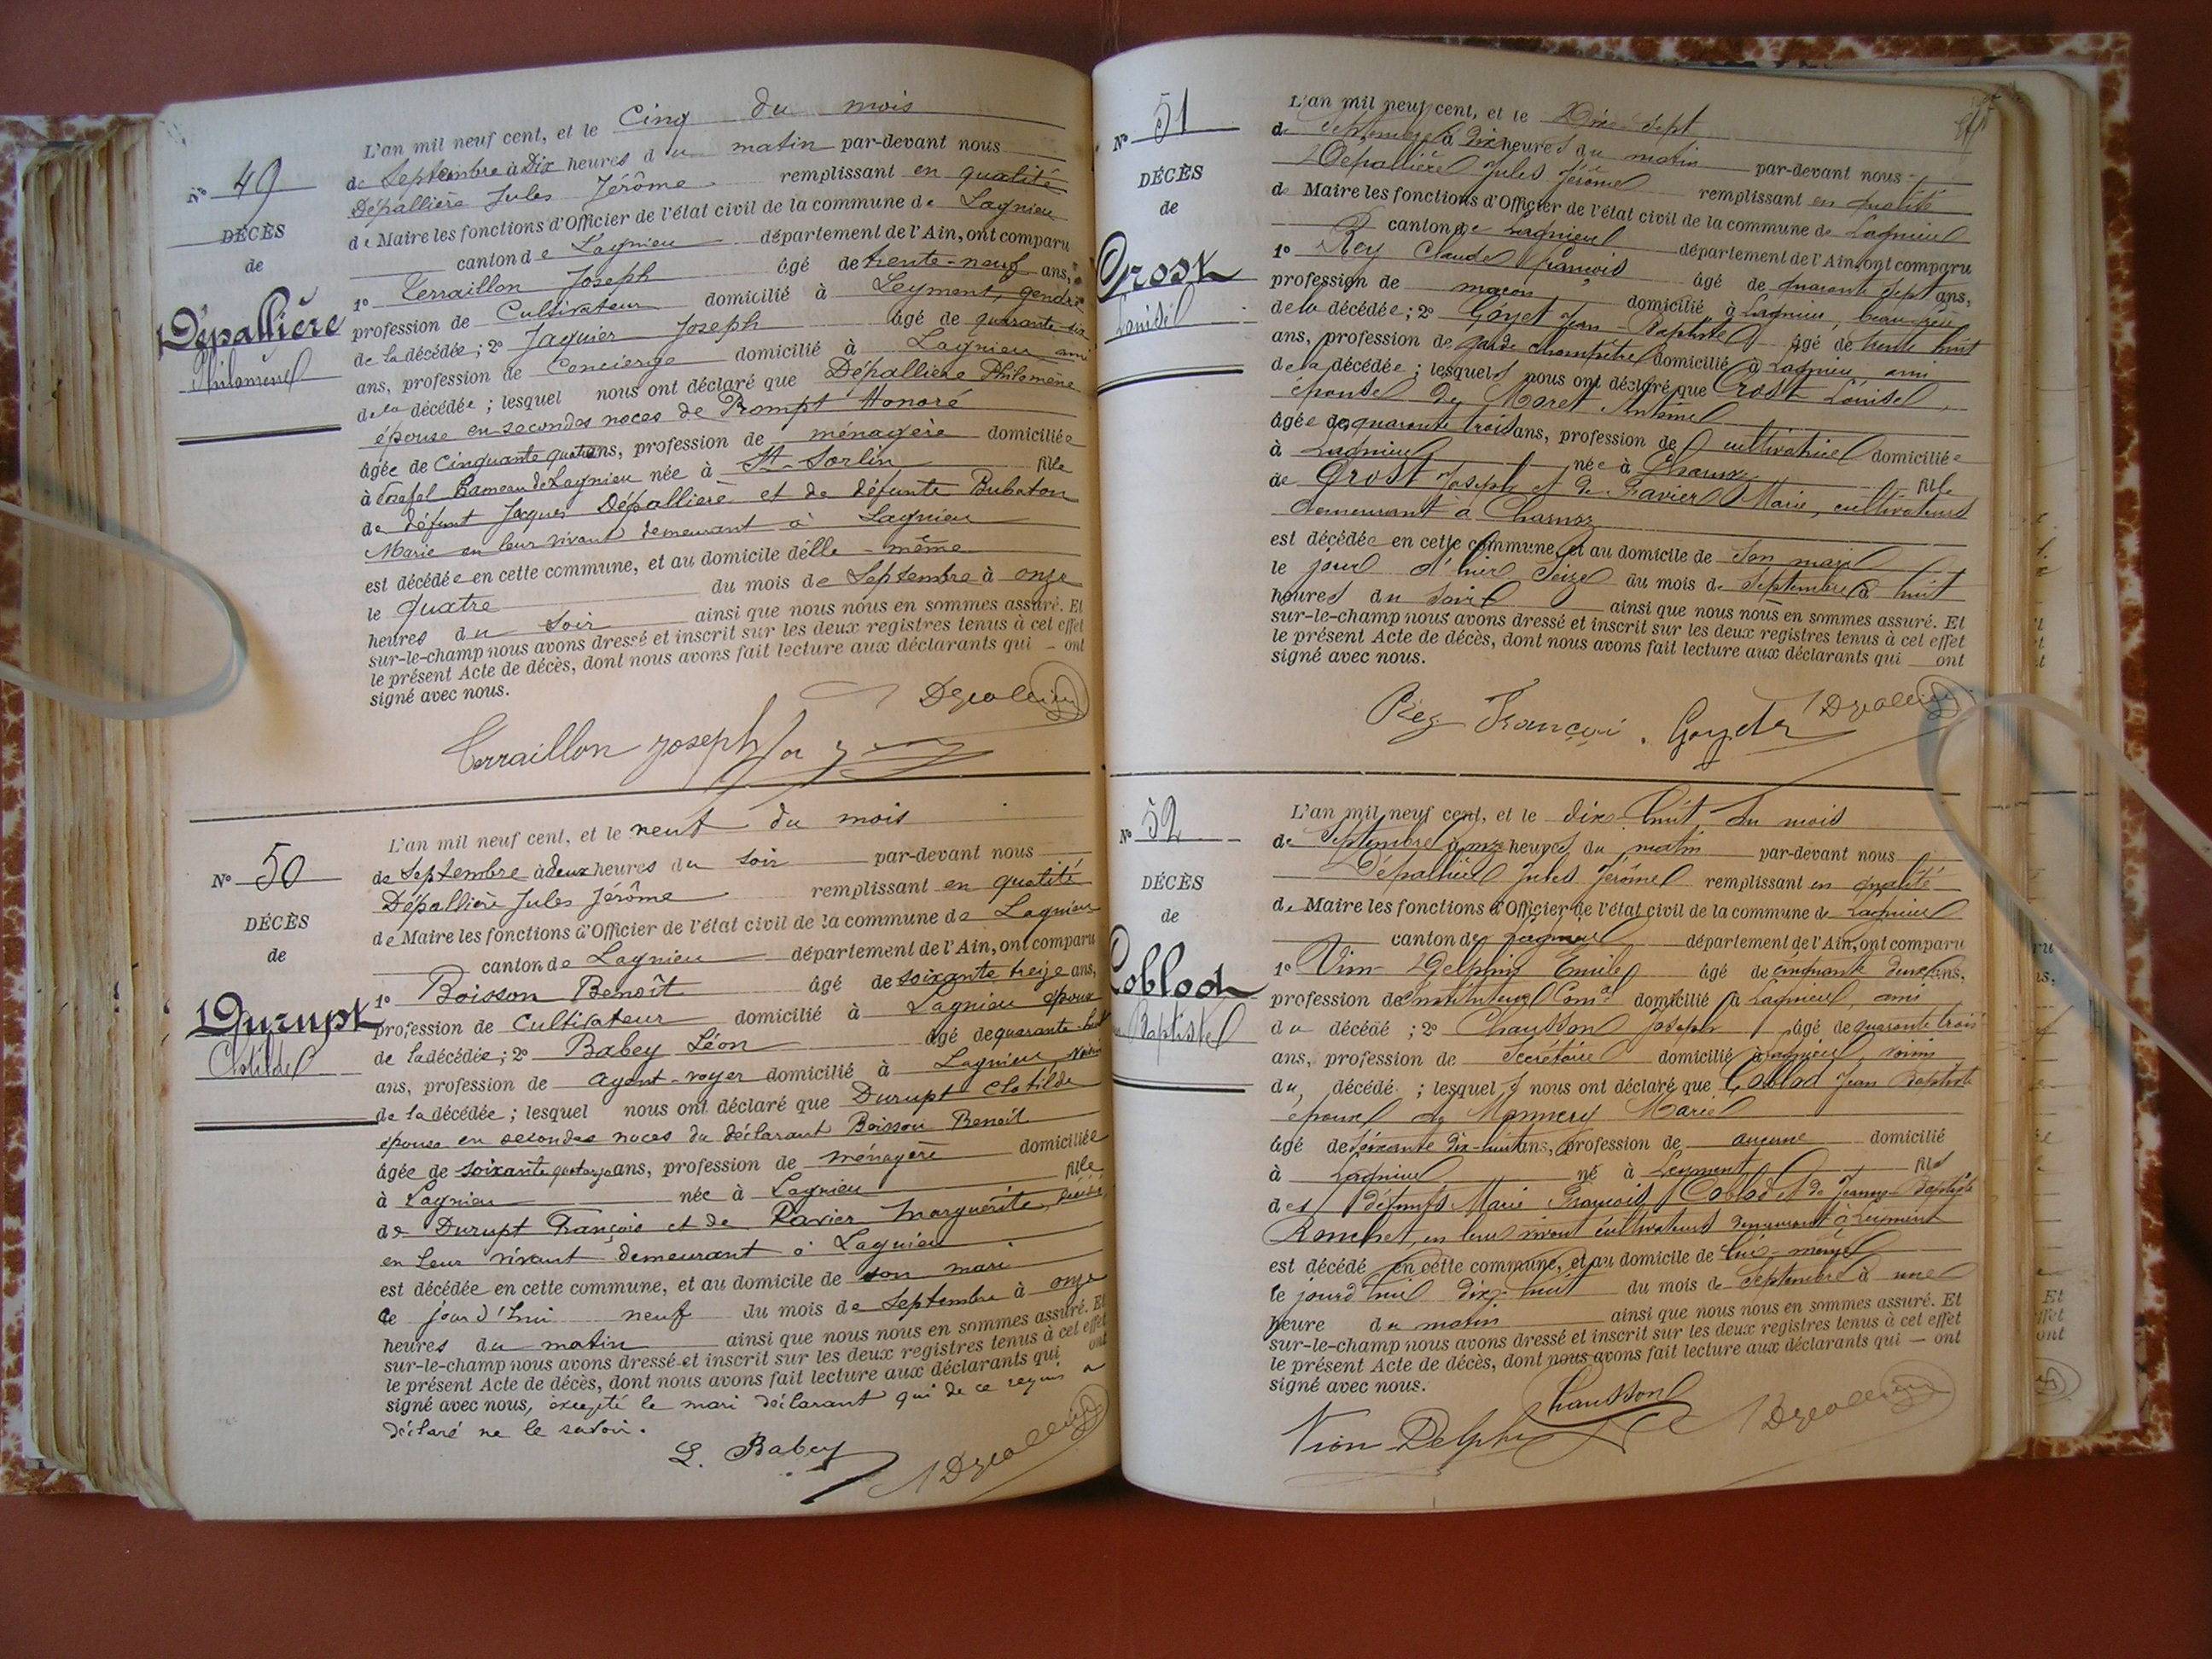 N° 49
DÉCÈS
de
Dépallière
Philomène
L'an mil neuf cent, et le Cinq du mois
de Septembre à Dix heures du matin par-devant nous
Dépallière Jules Jérôme remplissant en qualité
de Maire les fonctions d'Officier de l'état civil de la commune de Lagnieu
canton de Lagnieu département de l'Ain, ont comparu
1° Terraillon Joseph âgé de trente-neuf ans,
profession de Cultivateur domicilié à Leyment, gendre
de la décédée; 2° Jaquier Joseph âgé de quarante-six
ans, profession de Concierge domicilié à Lagnieu ami
de la décédée; lesquel nous ont déclaré que Dépallière Philomène
épouse en secondes noces de Prompt Honoré
âgée de Cinquante quatre ans, profession de ménagère domiciliée
à Hameau de Lagnieu née à St-Sorlin fille
de défunt Jacques Dépallière et de défunte Bubaton
Marie en leur vivant demeurant à Lagnieu
est décédée en cette commune, et au domicile d'elle-même
le quatre du mois de Septembre à onze
heures du soir ainsi que nous nous en sommes assuré. Et
sur-le-champ nous avons dressé et inscrit sur les deux registres tenus à cet effet
le présent Acte de décès, dont nous avons fait lecture aux déclarants qui ont
signé avec nous.
Terraillon Joseph
N° 50
DÉCÈS
de
Durupt
Clotilde
L'an mil neuf cent, et le neuf du mois
de Septembre à deux heures du soir par-devant nous
Dépallière Jules Jérôme remplissant en qualité
de Maire les fonctions d'Officier de l'état civil de la commune de Lagnieu
canton de Lagnieu département de l'Ain, ont comparu
1° Boisson Benoît âgé de soixante treize ans,
profession de Cultivateur domicilié à Lagnieu époux
de la décédée; 2° Babey Léon âgé de quarante-huit
ans, profession de agent-voyer domicilié à Lagnieu voisin
de la décédée; lesquel nous ont déclaré que Durupt Clotilde
épouse en secondes noces du déclarant Boisson Benoît
âgée de soixante quatorze ans, profession de ménagère domiciliée
à Lagnieu née à Lagnieu fille
de Durupt François et de Ravier Marguerite
en leur vivant demeurant à Lagnieu
est décédée en cette commune, et au domicile de son mari
ce jourd'hui neuf du mois de Septembre à onze
heures du matin ainsi que nous nous en sommes assuré. Et
sur-le-champ nous avons dressé et inscrit sur les deux registres tenus à cet effet
le présent Acte de décès, dont nous avons fait lecture aux déclarants qui ont
signé avec nous, excepté le mari déclarant qui de ce requis a
déclaré ne le savoir.
L. Babey
N° 51
DÉCÈS
de
Grost
Louise
L'an mil neuf cent, et le Dix sept
de Septembre à dix heures du matin par-devant nous
Dépallière Jules Jérôme remplissant en qualité
de Maire les fonctions d'Officier de l'état civil de la commune de Lagnieu
canton de Lagnieu département de l'Ain, ont comparu
1° Rey Claude François âgé de quarante sept ans,
profession de maçon domicilié à Lagnieu, beau-frère
de la décédée; 2° Goyet Jean-Baptiste âgé de trente huit
ans, profession de garde champêtre domicilié à Lagnieu ami
de la décédée; lesquels nous ont déclaré que Grost Louise,
épouse de Moret Antoine
âgée de quarante trois ans, profession de cultivatrice domiciliée
à Lagnieu née à Charnoz fille
de Grost Joseph et de Favier Marie, cultivateurs
demeurant à Charnoz
est décédée en cette commune, et au domicile de son mari
le jour d'hier Seize du mois de Septembre à huit
heures du soir ainsi que nous nous en sommes assuré. Et
sur-le-champ nous avons dressé et inscrit sur les deux registres tenus à cet effet
le présent Acte de décès, dont nous avons fait lecture aux déclarants qui ont
signé avec nous.
Rey Françoi. Goyet
N° 52
DÉCÈS
de
Coblod
Baptiste
L'an mil neuf cent, et le dix huit du mois
de Septembre à onze heures du matin par-devant nous
Dépallière Jules Jérôme remplissant en qualité
de Maire les fonctions d'Officier de l'état civil de la commune de Lagnieu
canton de Lagnieu département de l'Ain, ont comparu
1° Vion-Delphin Emile âgé de cinquante deux ans,
profession de Instituteur Comal domicilié à Lagnieu, ami
du décédé; 2° Chausson Joseph âgé de quarante trois
ans, profession de Secrétaire domicilié à Lagnieu, voisin
du décédé; lesquels nous ont déclaré que Coblod Jean Baptiste
époux de Monnery Marie
âgé de soixante dix-huit ans, profession de aucune domicilié
à Lagnieu né à Leyment fils
des défunts Marie François Coblod et de Jeanne-Baptiste
Ronchet, en leur vivant cultivateurs demeurant à Leyment
est décédé en cette commune, et au domicile de lui-même
le jourd'hui dix-huit du mois de Septembre à une
heure du matin ainsi que nous nous en sommes assuré. Et
sur-le-champ nous avons dressé et inscrit sur les deux registres tenus à cet effet
le présent Acte de décès, dont nous avons fait lecture aux déclarants qui ont
signé avec nous.
Chausson
Vion-Delphin